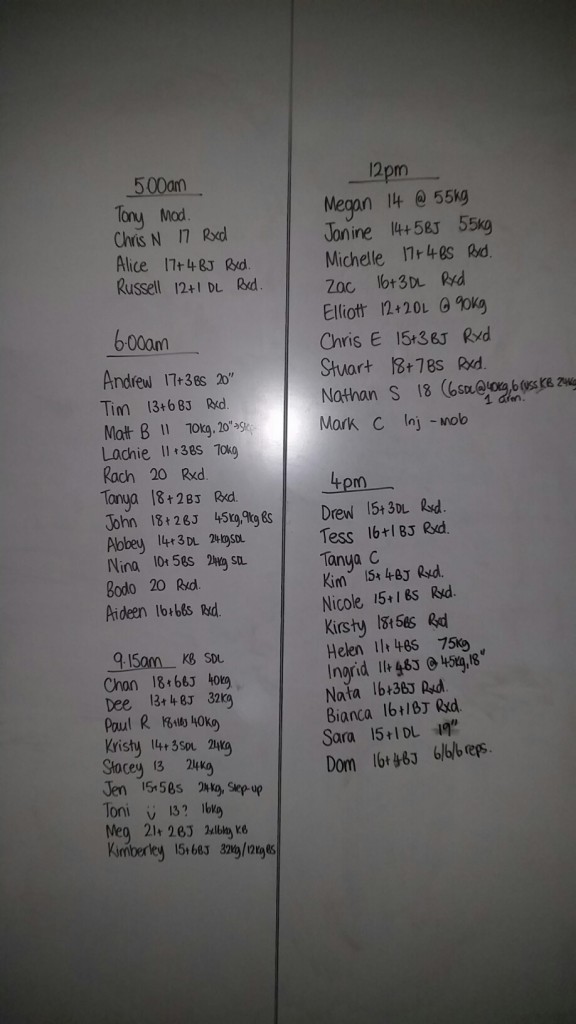 5:00am
Tony Mod.
Chris N 17 Rxd
Alice 17+4BJ Rxd.
Russell 12+1 DL Rxd.
6:00am
Andrew 17+3BS 20"
Tim 13+6BJ Rxd.
Matt B 11 70kg, 20"
Lachie 11+3BS 70kg
Rach 20 Rxd.
Tanya 18+2BJ Rxd.
John 18+2BJ 45kg, 9kg BS
Abbey 14+3DL 24kg SDL
Nina 10+5BS 24kg SDL
Bodo 20 Rxd.
Aideen 16+6BS Rxd.
9.15am KB SDL
Chan 18+6BJ 40kg
Dee 13+4BJ 32kg
Paul R 40kg
Kristy 14+3SDL 24kg
Stacey 13 24kg
Jen 15+5BS 24kg, Step-up
Toni 13? 16kg
Meg 21+2BJ 2x16kg KB
Kimberley 15+6BJ 32kg/12kg BS
12pm
Megan 14 @ 55kg
Janine 14+5BJ 55kg
Michelle 17+4BS Rxd.
Zac 16+3DL Rxd
Elliott 12+2DL @ 90kg
Chris E 15+3BJ Rxd
Stuart 18+7BS Rxd.
Nathan S 18 (6SDL@40kg, 6 KB 24kg
1 arm.
Mark C Inj-mob
4pm
Drew 15+3DL Rxd.
Tess 16+1BJ Rxd.
Tanya C
Kim 15+4BJ Rxd.
Nicole 15+1BS Rxd.
Kirsty 18+5BS Rxd
Helen 11+4BS 75kg
Ingrid 11+4BJ @ 45kg, 18"
Nata 16+3BJ Rxd.
Bianca 16+1BJ Rxd.
Sara 15+1DL 19"
Dom 16+4BJ 6/6/6 reps.